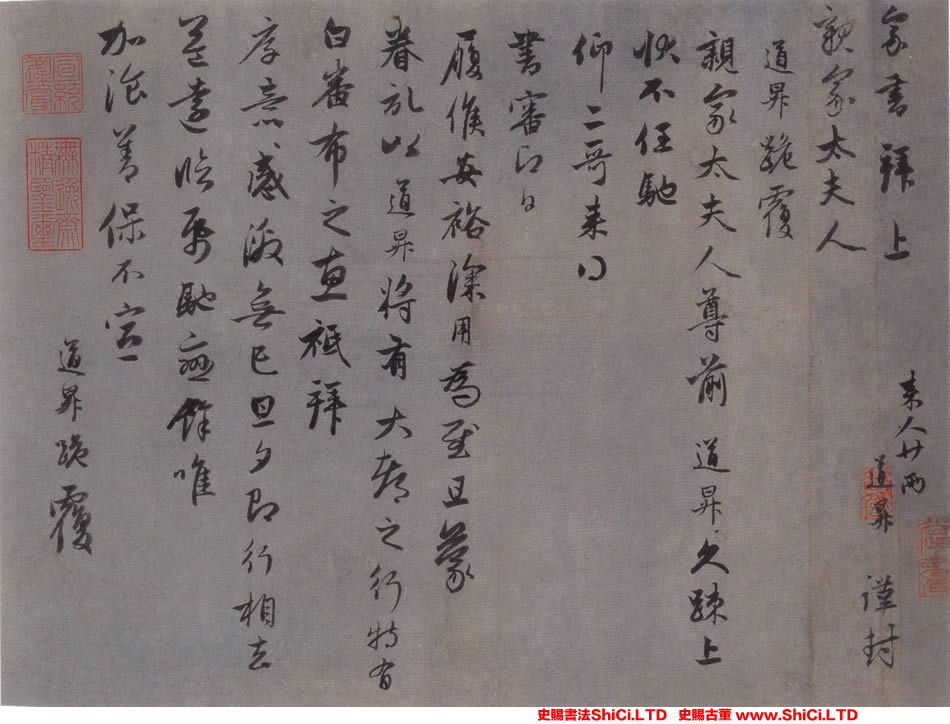 家書拜上
親家太夫人
來人廿兩
道昇 謹封
道昇跪覆
親家太夫人尊前 道昇久疎上
狀不任馳
仰二哥來同
書審即日
履候安裕深用為慰且蒙
眷記以道昇將有大都之行特有
白番布之惠祗拜
厚意感激無已旦夕即行相去
益遠臨風馳戀餘唯
加湌善保不宣
道昇跪覆
宣統鑑賞
無逸齋精鑒璽
史賜書法ShiCi.LTD 史賜古董 www.ShiCi.LTD